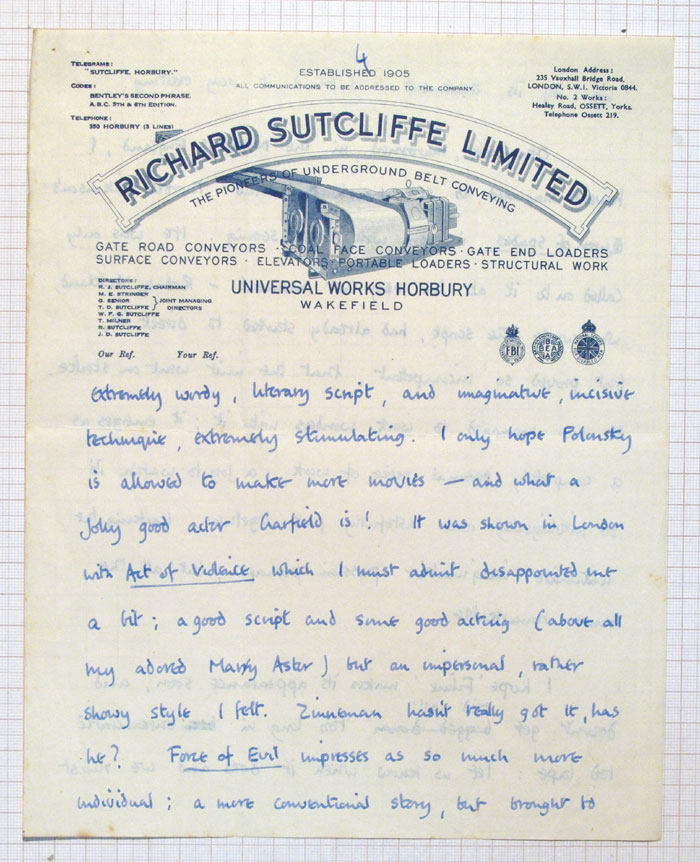 4
TELEGRAMS:
"SUTCLIFFE, HORBURY."
CODES:
BENTLEY'S SECOND PHRASE.
A.B.C. 5TH & 6TH EDITION.
TELEPHONE:
350 HORBURY (3 LINES)
ESTABLISHED 1905
ALL COMMUNICATIONS TO BE ADDRESSED TO THE COMPANY
London Address:
235 Vauxhall Bridge Road,
LONDON, S.W.1. Victoria 0844.
No. 2 Works:
Healey Road, OSSETT, Yorks.
Telephone Ossett 219.
RICHARD SUTCLIFFE LIMITED
THE PIONEERS OF UNDERGROUND BELT CONVEYING
GATE ROAD CONVEYORS · COAL FACE CONVEYORS · GATE END LOADERS
SURFACE CONVEYORS · ELEVATORS · PORTABLE LOADERS · STRUCTURAL WORK
UNIVERSAL WORKS HORBURY
WAKEFIELD
DIRECTORS:
R. J. SUTCLIFFE, CHAIRMAN
M. E. STRINGER
G. SENIOR } JOINT MANAGING
T. D. SUTCLIFFE } DIRECTORS
W. F. G. SUTCLIFFE
T. MILNER
R. SUTCLIFFE
J. D. SUTCLIFFE
FBI
BEA
Our Ref. Your Ref.
extremely wordy, literary script, and imaginative, incisive
technique, extremely stimulating. I only hope Polonsky
is allowed to make more movies — and what a
jolly good actor Garfield is! It was shown in London
with Act of Violence which I must admit disappointed me
a bit; a good script and some good acting (above all
my adored Marry Astor) but an impersonal, rather
showy style I felt. Zinneman hasn't really got it, has
he? Force of Evil impresses as so much more
individual; a more conventional story, but brought to